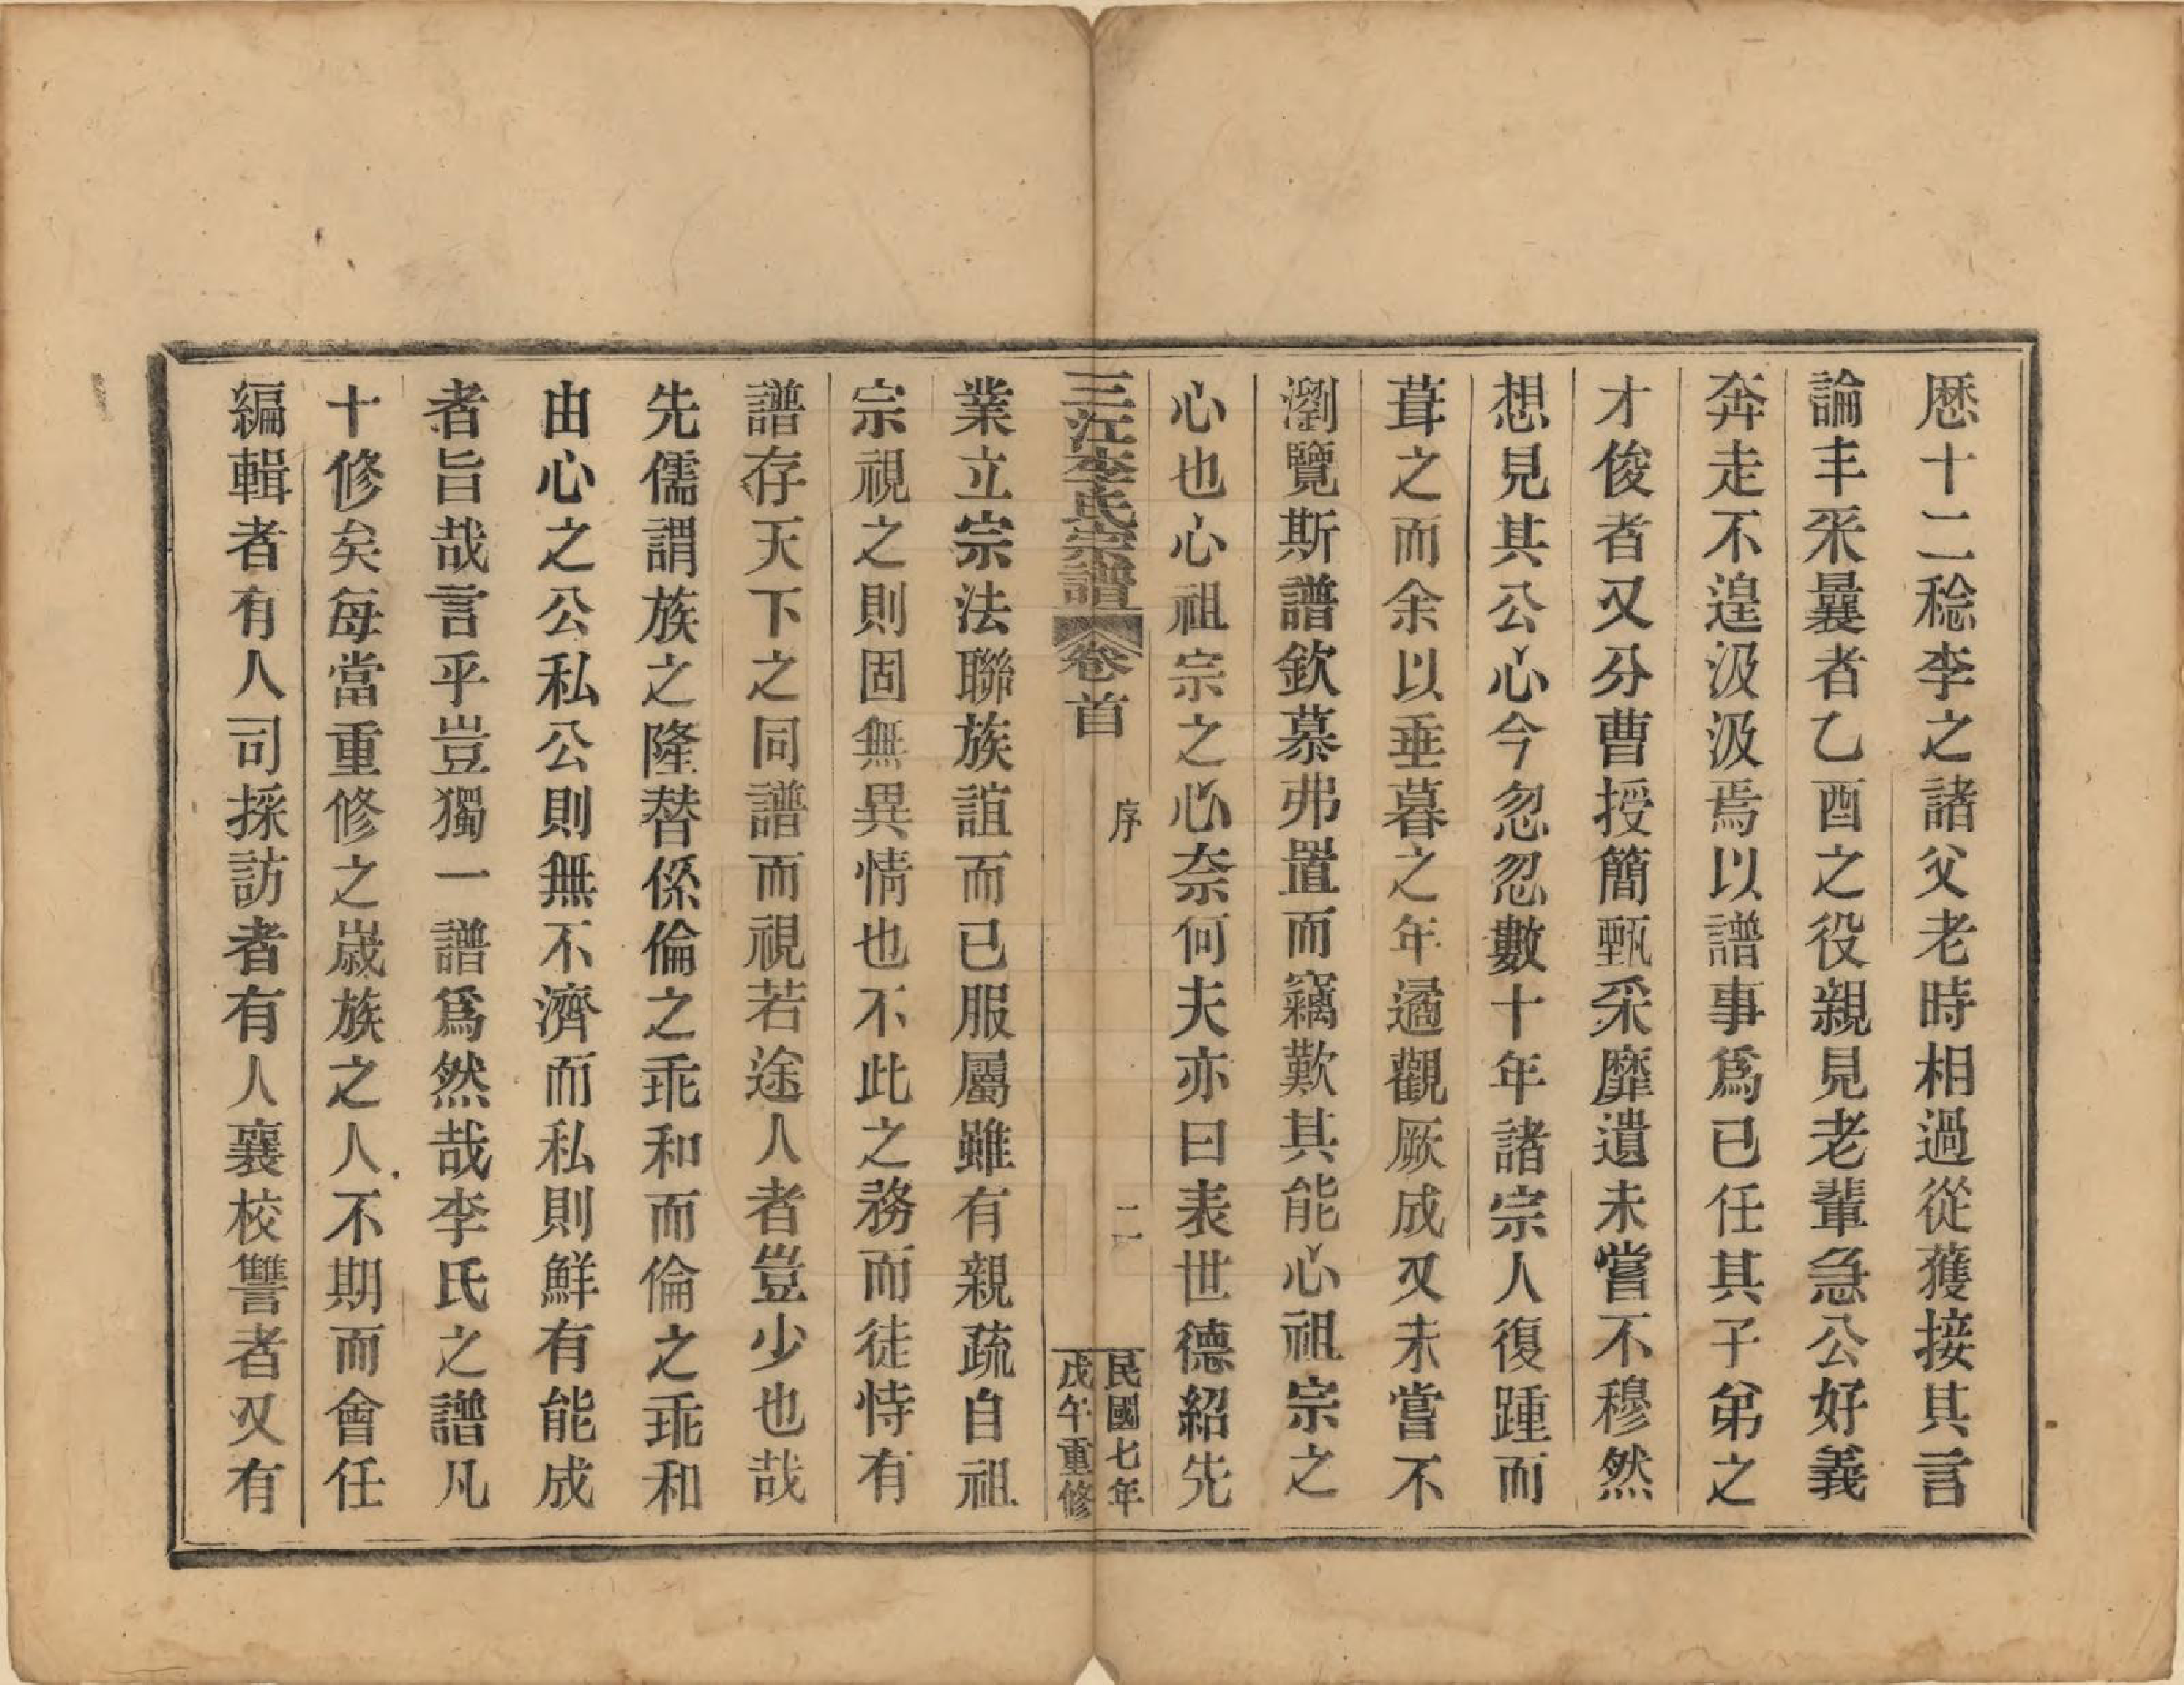 歷十二稔李之諸父老時相過從獲接其言
論丰采曩者乙酉之役親見老輩急公好義
奔走不遑汲汲焉以譜事爲已任其子弟之
才俊者又分曹授簡甄采靡遺未嘗不穆然
想見其公心今忽忽數十年諸宗人復踵而
葺之而余以垂暮之年遹觀厥成又未嘗不
瀏覽斯譜欽慕弗置而竊歎其能心祖宗之
心也心祖宗之心奈何夫亦曰表世德紹先
三江李氏宗譜 卷首 序 二 民國七年
戊午重修
業立宗法聯族誼而已服屬雖有親疏自祖
宗視之則固無異情也不此之務而徒恃有
譜存天下之同譜而視若途人者豈少也哉
先儒謂族之隆替係倫之乖和而倫之乖和
由心之公私公則無不濟而私則鮮有能成
者旨哉言乎豈獨一譜爲然哉李氏之譜凡
十修矣每當重修之歲族之人不期而會任
編輯者有人司採訪者有人襄校讐者又有